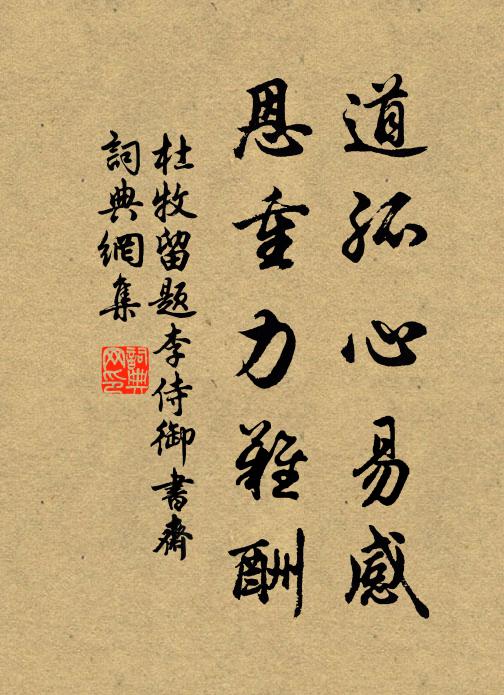 道孤心易感
恩重力難酬
杜牧留題李侍御書齋
詞典網集
詞典
网印